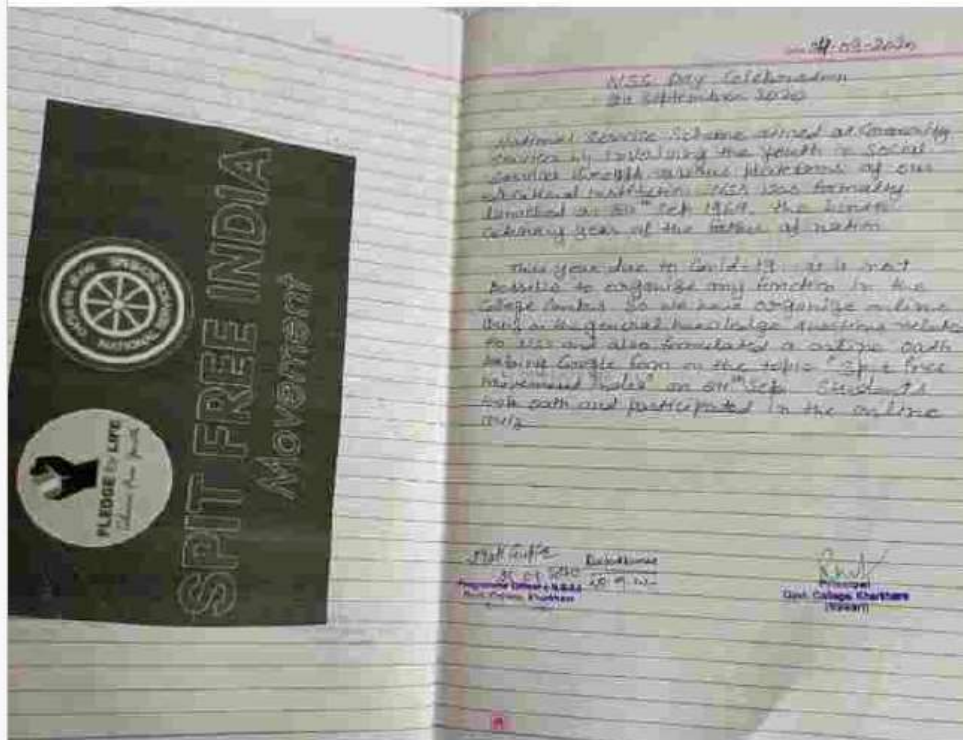 SPIT FREE INDIA
Movement
NATIONAL SERVICE SCHEME
PLEDGE for LIFE
09-2020
NSS Day Celebration
September 2020
National Service Scheme aimed at Community
services by involving the youth in Social
service through various platforms of our
institution. NSS was formally
launched on 24th Sep 1969, the birth
centenary year of the father of nation
This year due to Covid-19 it is not
possible to organize any function in the
College Campus So we have organize online
quiz in the general knowledge questions relate
to NSS and also formulated a online oath
Google form on the topic "Spit Free
Movement India" on 24th Sep. Students
took oath and participated in the online
quiz
Programme Officer
Govt. College, Kharkhara
Principal
Govt. College Kharkhara
(Rewari)